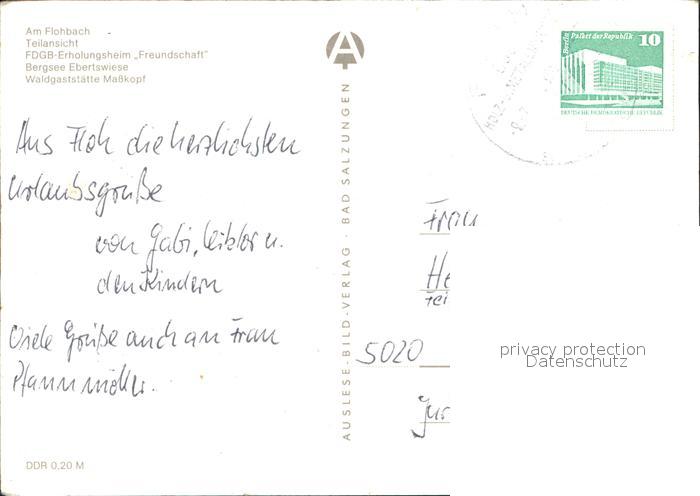 Am Flohbach
Teilansicht
FDGB-Erholungsheim „Freundschaft"
Bergsee Ebertswiese
Waldgaststätte Maßkopf
Aus Floh die herzlichsten
Urlaubsgrüße
von Gabi, Viktor u.
den Kindern
Viele Grüße auch an Frau
Pfannmöller.
DDR 0,20 M
AUSLESE-BILD-VERLAG · BAD SALZUNGEN
A
Berlin Palast der Republik 10
DEUTSCHE DEMOKRATISCHE REPUBLIK
Frau
He
5020
privacy protection
Datenschutz